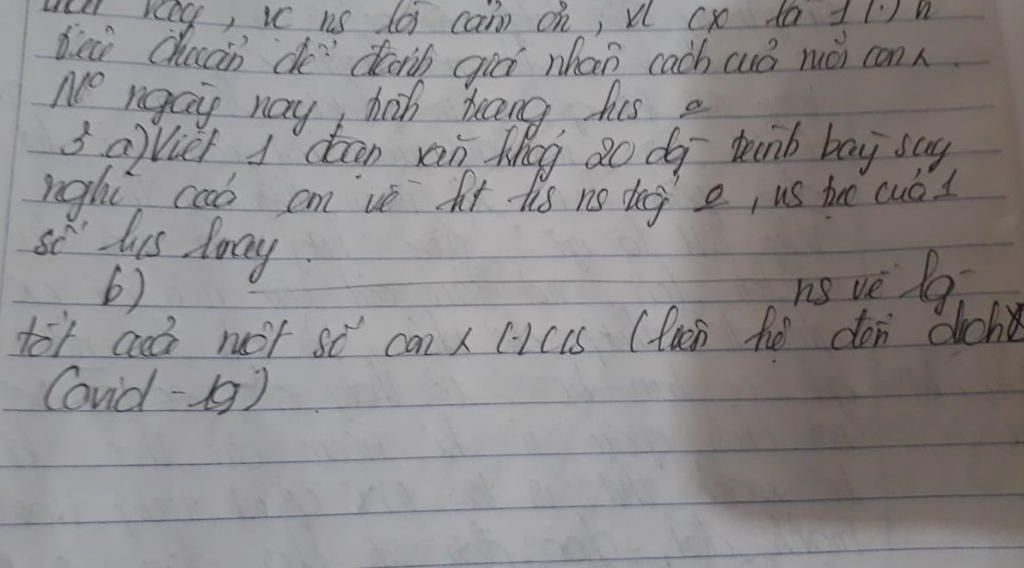 vậy, vc ns lời cảm ơn, vl cx là 1
tiêu chuẩn để đánh giá nhân cách cuả mỗi con
Nº ngày nay, tình trạng hs
3 a) Viết 1 đoạn văn khg 20 dg trình bày suy
nghĩ cuả em về ht hs ns tục cuả 1
số hs hnay.
b) ns về lg
tốt cuả một số con (liên hệ đến dịch
Covid-19)